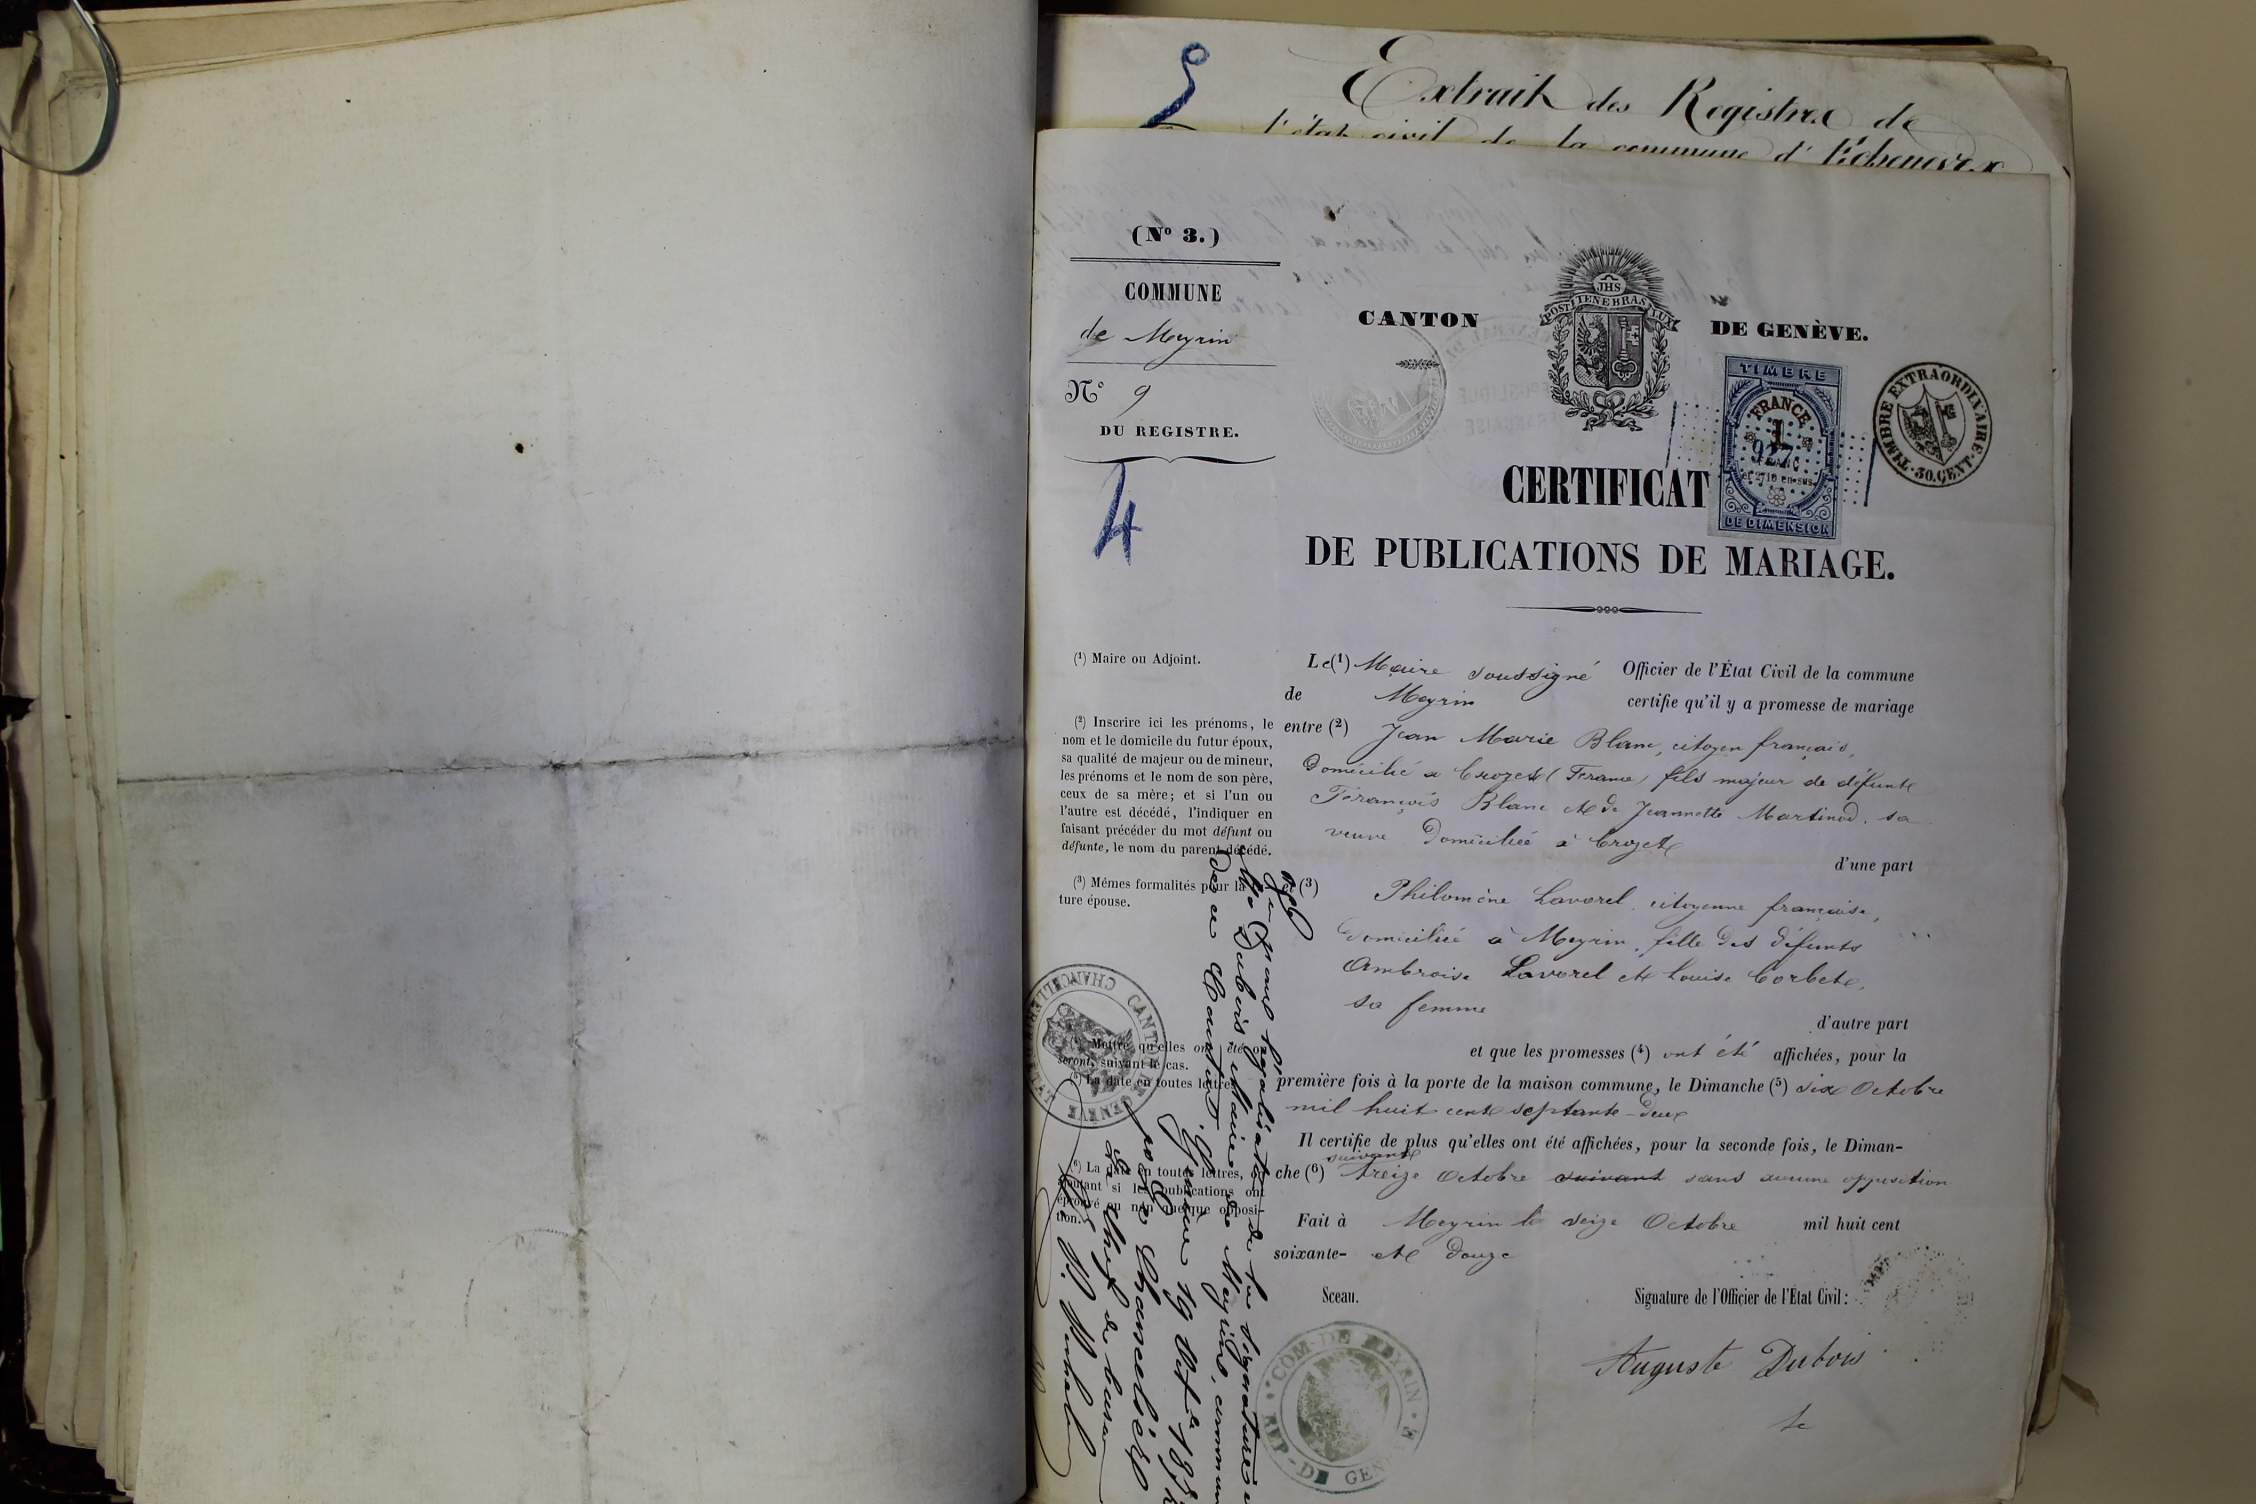 Extrait des Registres de
l'état civil de la commune d'Echenevex
(Nº 3.)
COMMUNE
de Meyrin
Nº 9
DU REGISTRE.
4
CANTON DE GENÈVE.
JHS
POST TENEBRAS LUX
TIMBRE
FRANCE
1
927
FRANC
et 2/10 en sus
DE DIMENSION
TIMBRE EXTRAORDINAIRE
30. CENT.
CERTIFICAT
DE PUBLICATIONS DE MARIAGE.
(¹) Maire ou Adjoint.
(²) Inscrire ici les prénoms, le
nom et le domicile du futur époux,
sa qualité de majeur ou de mineur,
les prénoms et le nom de son père,
ceux de sa mère; et si l'un ou
l'autre est décédé, l'indiquer en
faisant précéder du mot défunt ou
défunte, le nom du parent décédé.
(³) Mêmes formalités pour la
ture épouse.
(⁴) Mettre qu'elles ont été
seront, suivant le cas.
(⁵) La date en toutes lettres
(⁶) La date en toutes lettres,
ajoutant si les publications ont
éprouvé ou non quelque opposi-
tion.
Le (¹) Maire soussigné Officier de l'État Civil de la commune
de Meyrin certifie qu'il y a promesse de mariage
entre (²) Jean Marie Blanc, citoyen français,
Domicilié a Crozet (France) fils majeur de défunt
François Blanc et de Jeannette Martinod, sa
veuve Domiciliée à Crozet
d'une part
(³) Philomène Lavorel, citoyenne française,
Domiciliée à Meyrin, fille des défunts
Ambroise Lavorel et Louise Corbet,
sa femme
d'autre part
et que les promesses (⁴) ont été affichées, pour la
première fois à la porte de la maison commune, le Dimanche (⁵) six Octobre
mil huit cent septante-deux
Il certifie de plus qu'elles ont été affichées, pour la seconde fois, le Diman-
suivant
che (⁶) treize Octobre suivant sans aucune opposition
Fait à Meyrin le seize Octobre mil huit cent
soixante- et douze
Sceau.
Signature de l'Officier de l'État Civil:
Auguste Dubois
COM. DE MEYRIN
REP. DE GEN
CANTON DE GENÈVE
CHANCELLERIE
Vu pour légalisation de la signature
de Mr Dubois, Maire de Meyrin, commune
de ce Canton.
Genève 19 Oct.
pour le Chancelier
Le chef de bureau